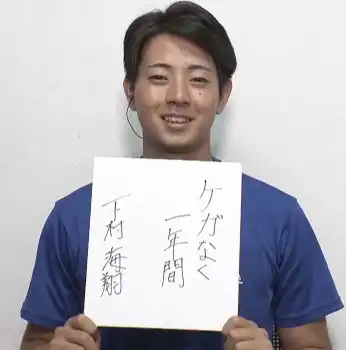 ケガなく
一年間
下村 海翔